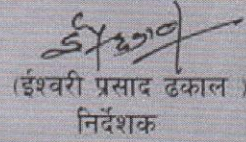 (ईश्वरी प्रसाद ढकाल )
निर्देशक